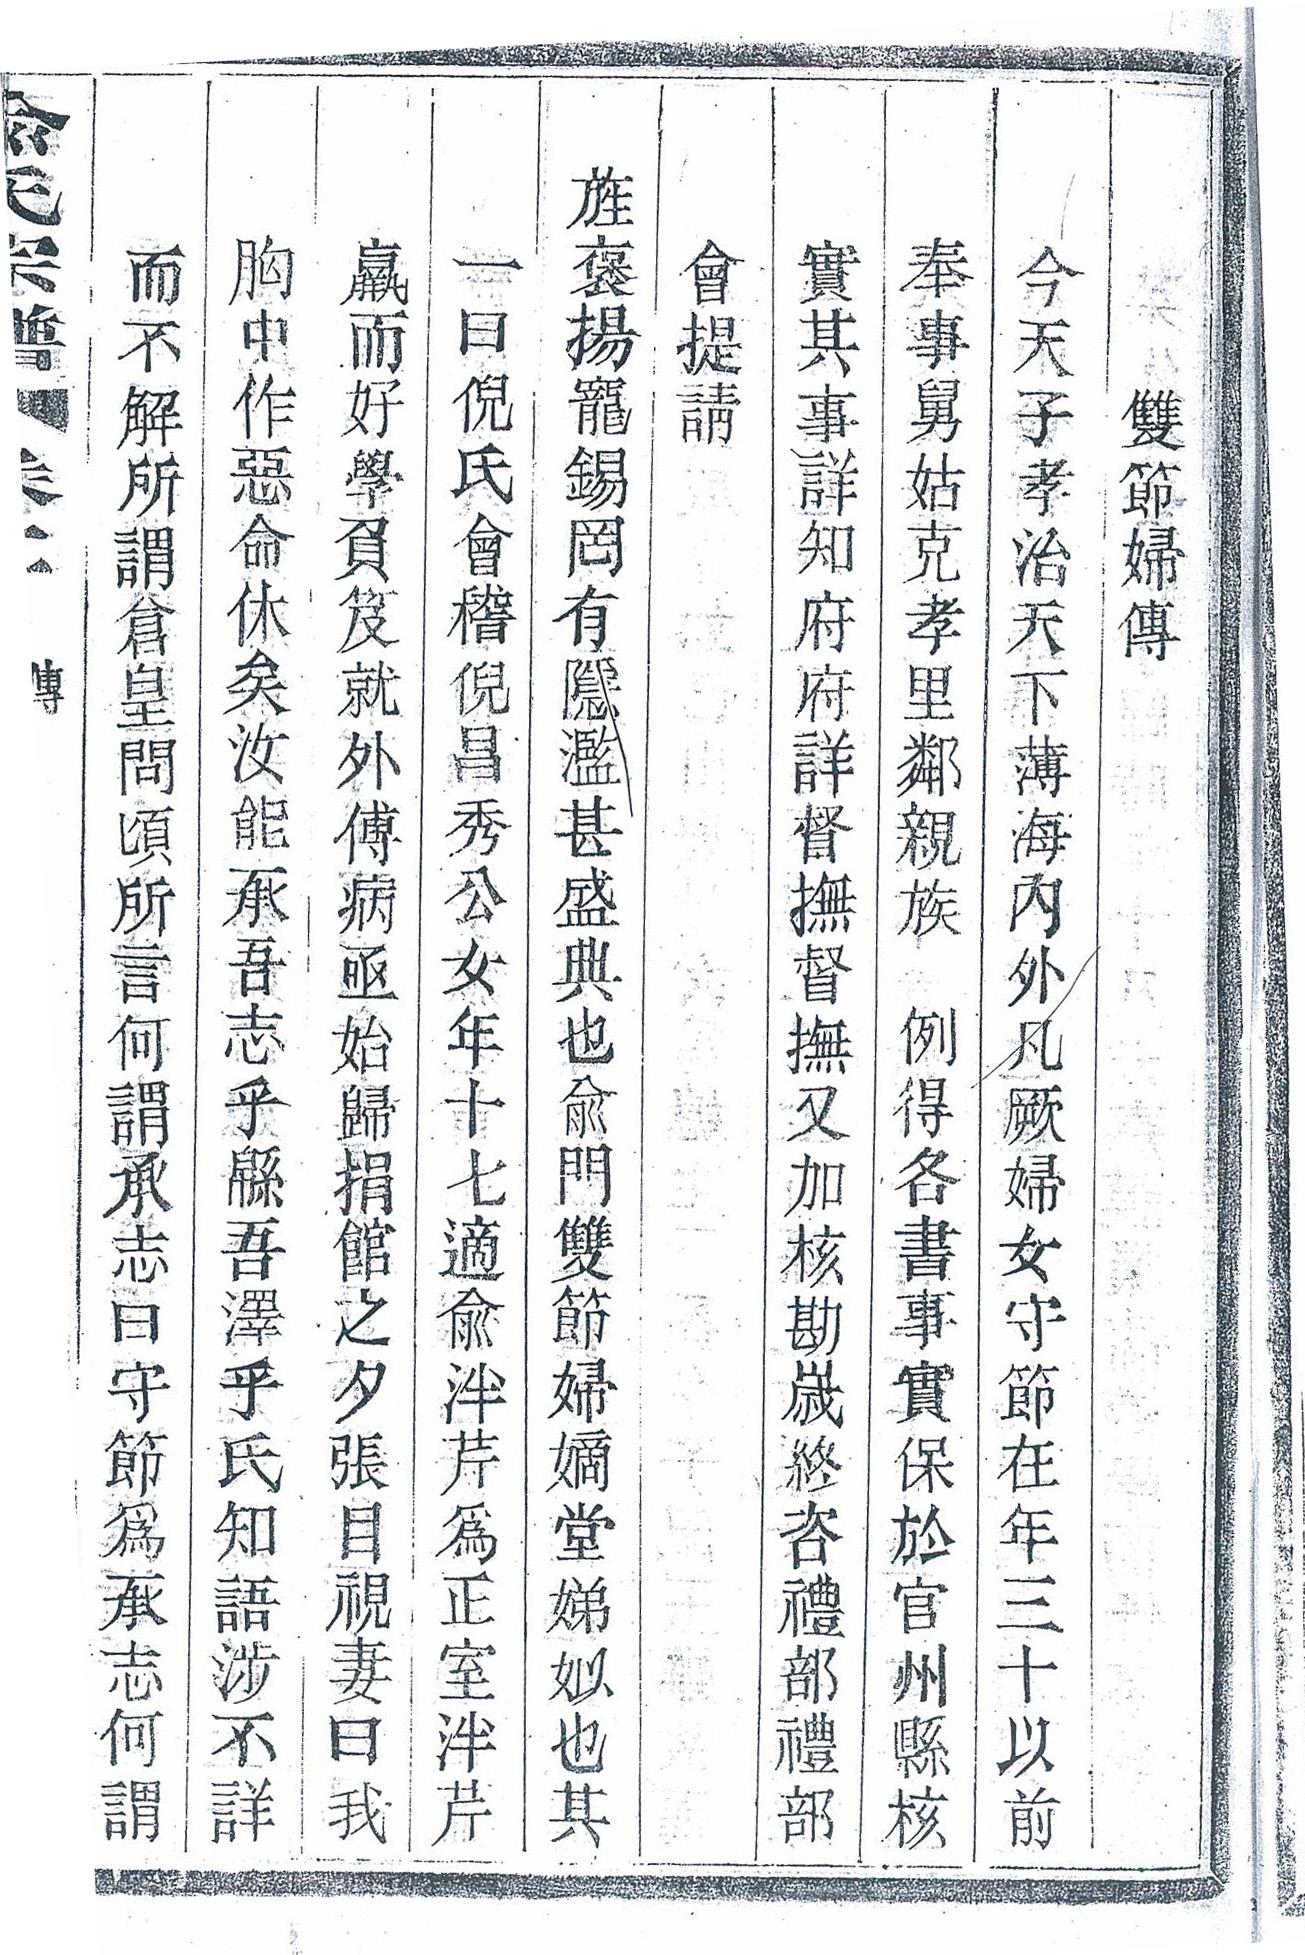 雙節婦傳
今天子孝治天下薄海內外凡厥婦女守節在年三十以前
奉事舅姑克孝里鄰親族　例得各書事實保於官州縣核
實其事詳知府府詳督撫督撫又加核勘歲終咨禮部禮部
會提請
旌褒揚寵錫罔有隱濫甚盛典也兪門雙節婦嫡堂娣姒也其
一曰倪氏會稽倪昌秀公女年十七適兪泮芹爲正室泮芹
羸而好學負笈就外傅病亟始歸捐館之夕張目視妻曰我
胸中作惡命休矣汝能承吾志乎緜吾澤乎氏知語涉不詳
而不解所謂倉皇問頃所言何謂承志曰守節爲承志何謂
兪氏宗譜 卷 傳